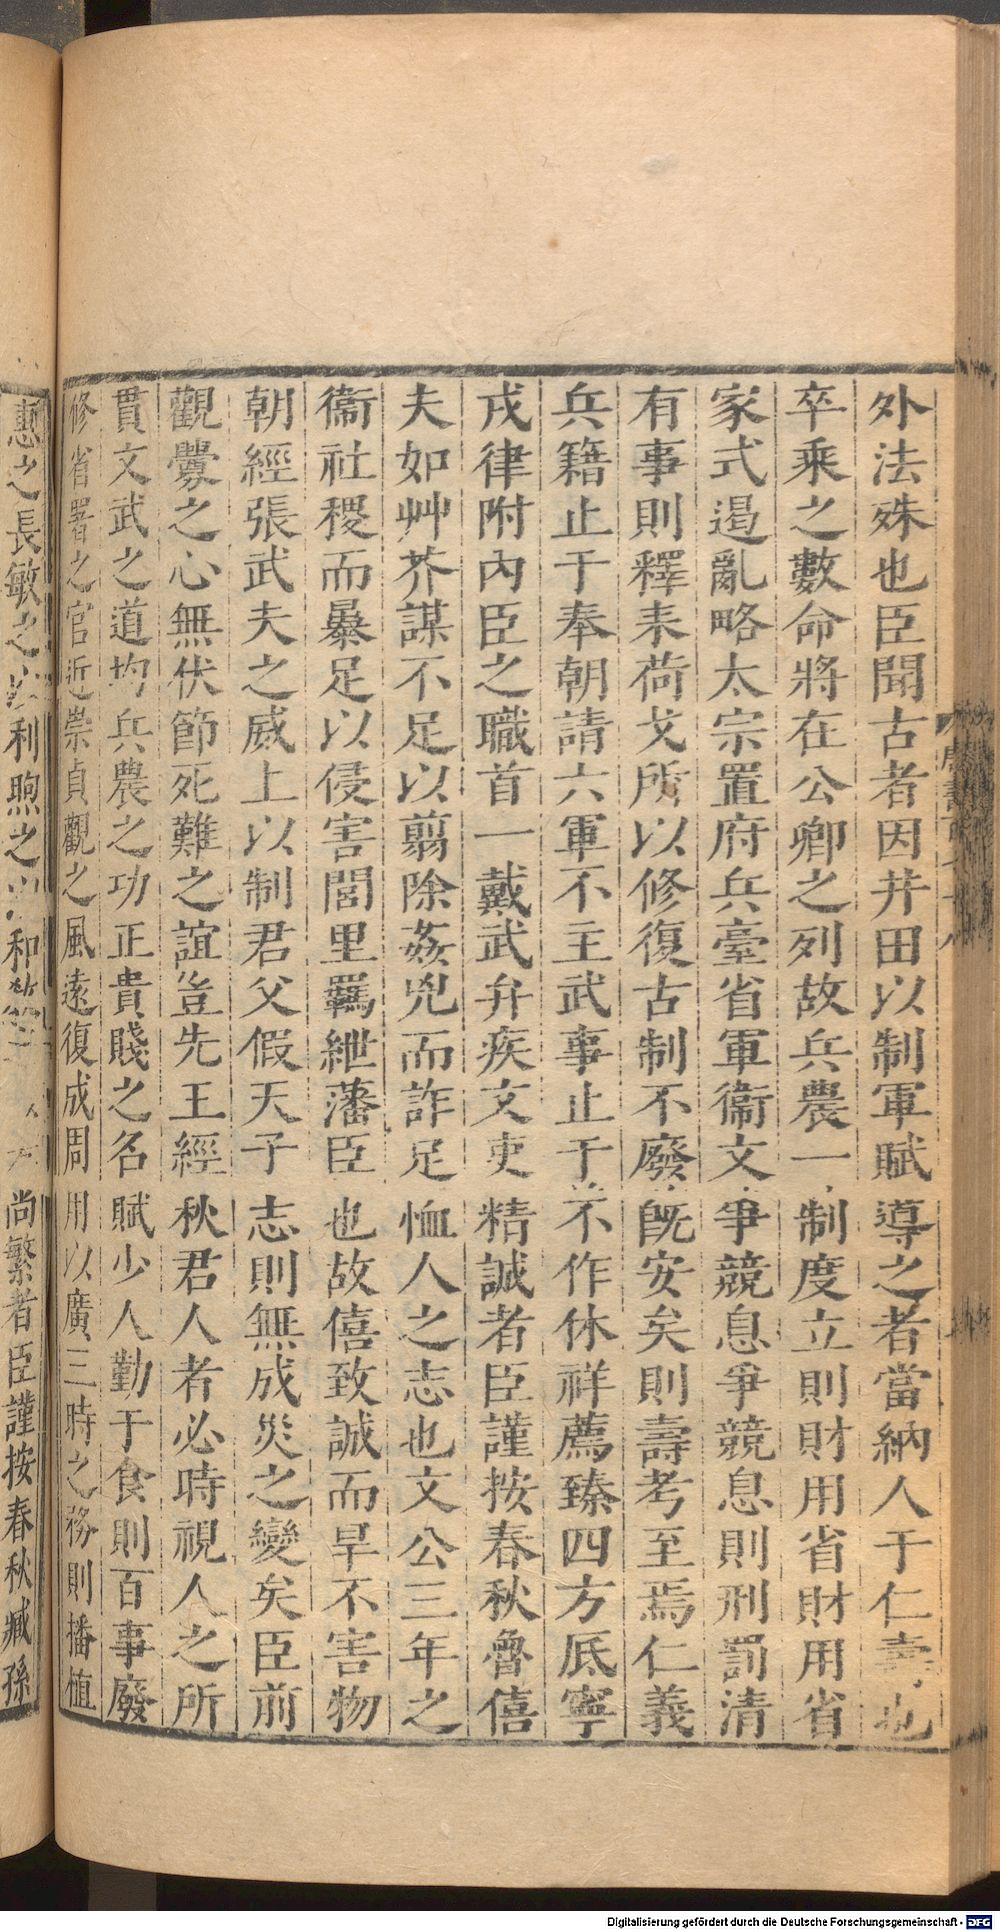 外法殊也臣聞古者因井田以制軍賦導之者當納人于仁壽也
卒乘之數命將在公卿之列故兵農一制度立則財用省財用省
家式遏亂略太宗置府兵臺省軍衞文爭競息爭競息則刑罰清
有事則釋耒荷戈所以修復古制不廢旣安矣則壽考至焉仁義
兵籍止于奉朝請六軍不主武事止于不作休祥薦臻四方厎寧
戎律附內臣之職首一戴武弁疾文吏精誠者臣謹按春秋魯僖
夫如艸芥謀不足以翦除姦兇而詐足恤人之志也文公三年之
衞社稷而暴足以侵害閭里羈紲藩臣也故僖致誠而旱不害物
朝經張武夫之威上以制君父假天子志則無成災之變矣臣前
觀釁之心無伏節死難之誼豈先王經秋君人者必時視人之所
貫文武之道均兵農之功正貴賤之名賦少人勤于食則百事廢
修省署之官近崇貞觀之風遠復成周用以廣三時之務則播植
惠之長敏之利煦之和尚繁者臣謹按春秋臧孫
Digitalisierung gefördert durch die Deutsche Forschungsgemeinschaft - DFG